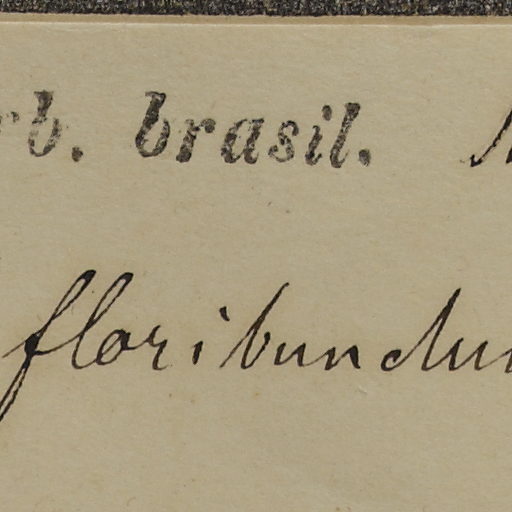 rb. brasil. N
floribundu